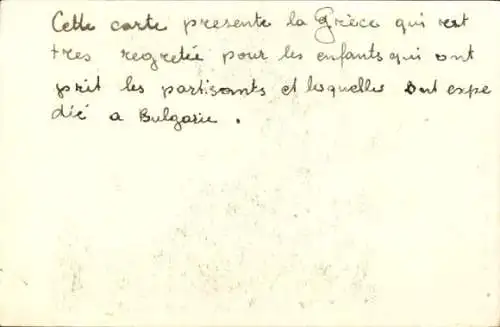 Cette carte presente la Grèce qui est
tres regretée pour les enfants qui ont
prit les partisants et lesquelles ont expe
dié a Bulgarie .